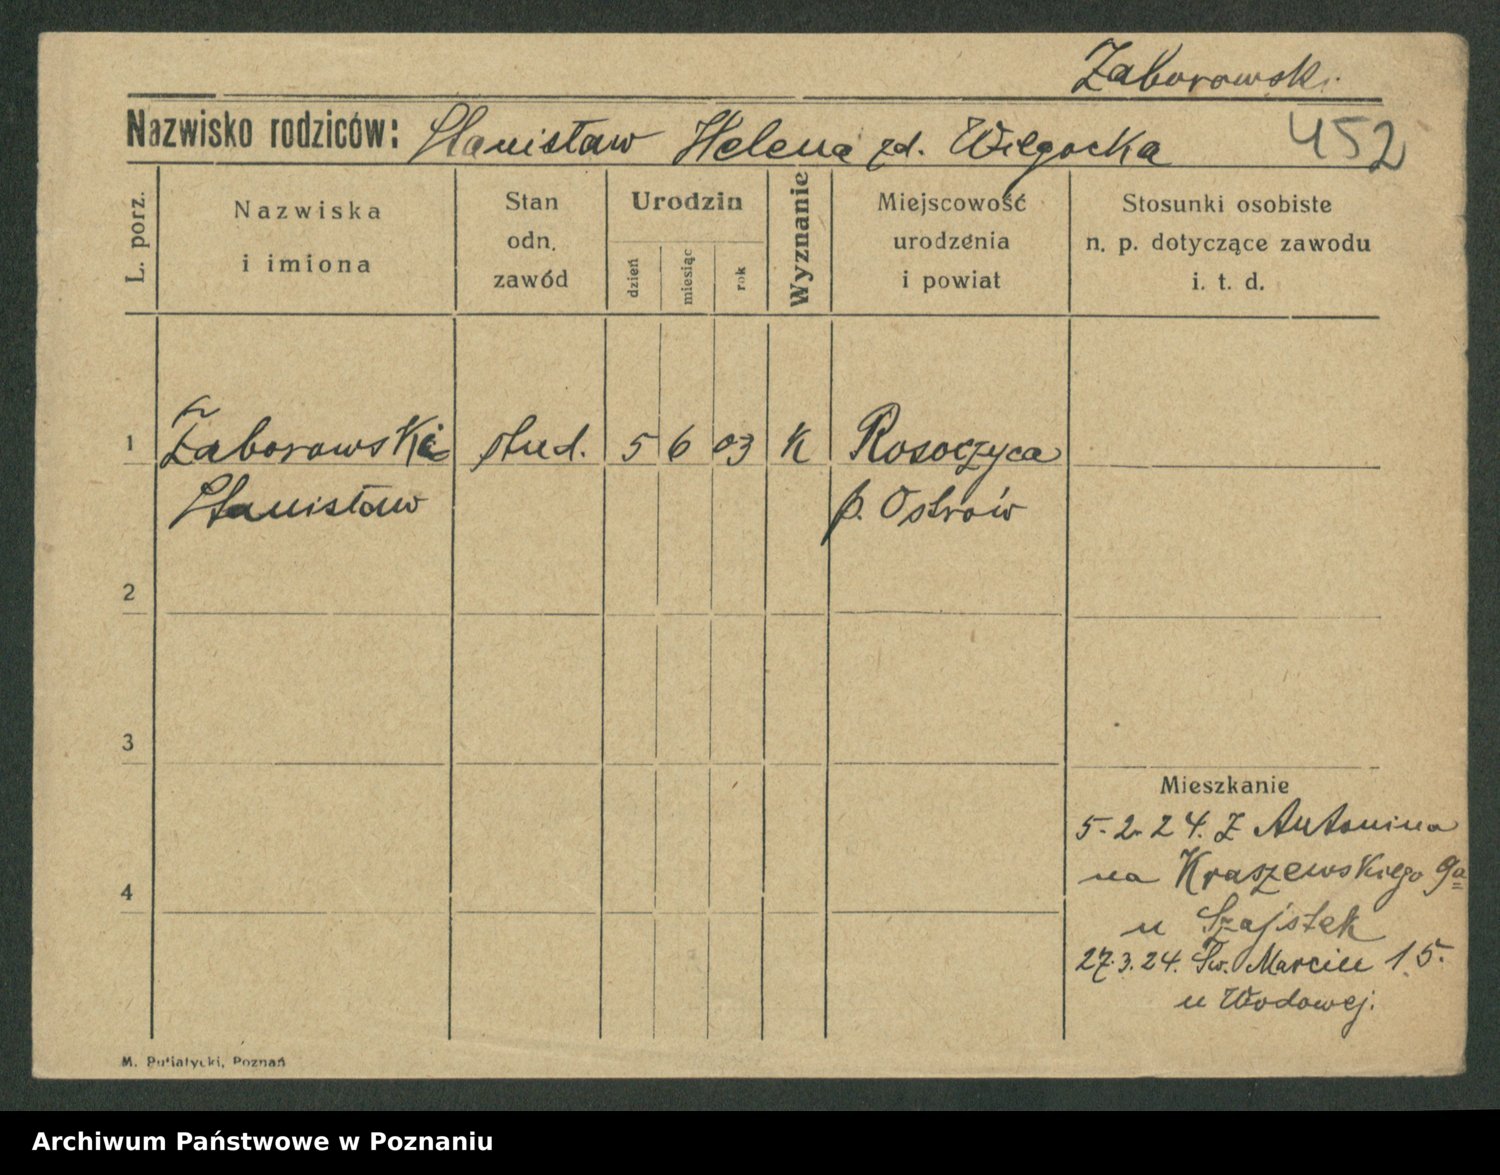 Zaborowski
Nazwisko rodziców: Stanisław Helena zd. Wilgocka
452
L. porz.
Nazwiska
i imiona
Stan
odn.
zawód
Urodzin
dzień
miesiąc
rok
Wyznanie
Miejscowość
urodzenia
i powiat
Stosunki osobiste
n. p. dotyczące zawodu
i. t. d.
1 Zaborowski stud. 5 6 03 K Rosoczyca
Stanisław p. Ostrów
2
3
Mieszkanie
5.2.24. Z Antonina
na Kraszewskiego 9a
4
u Szajstek
27.3.24. Św. Marcin 15.
u Wodowej.
M. Putiatycki, Poznań
Archiwum Państwowe w Poznaniu